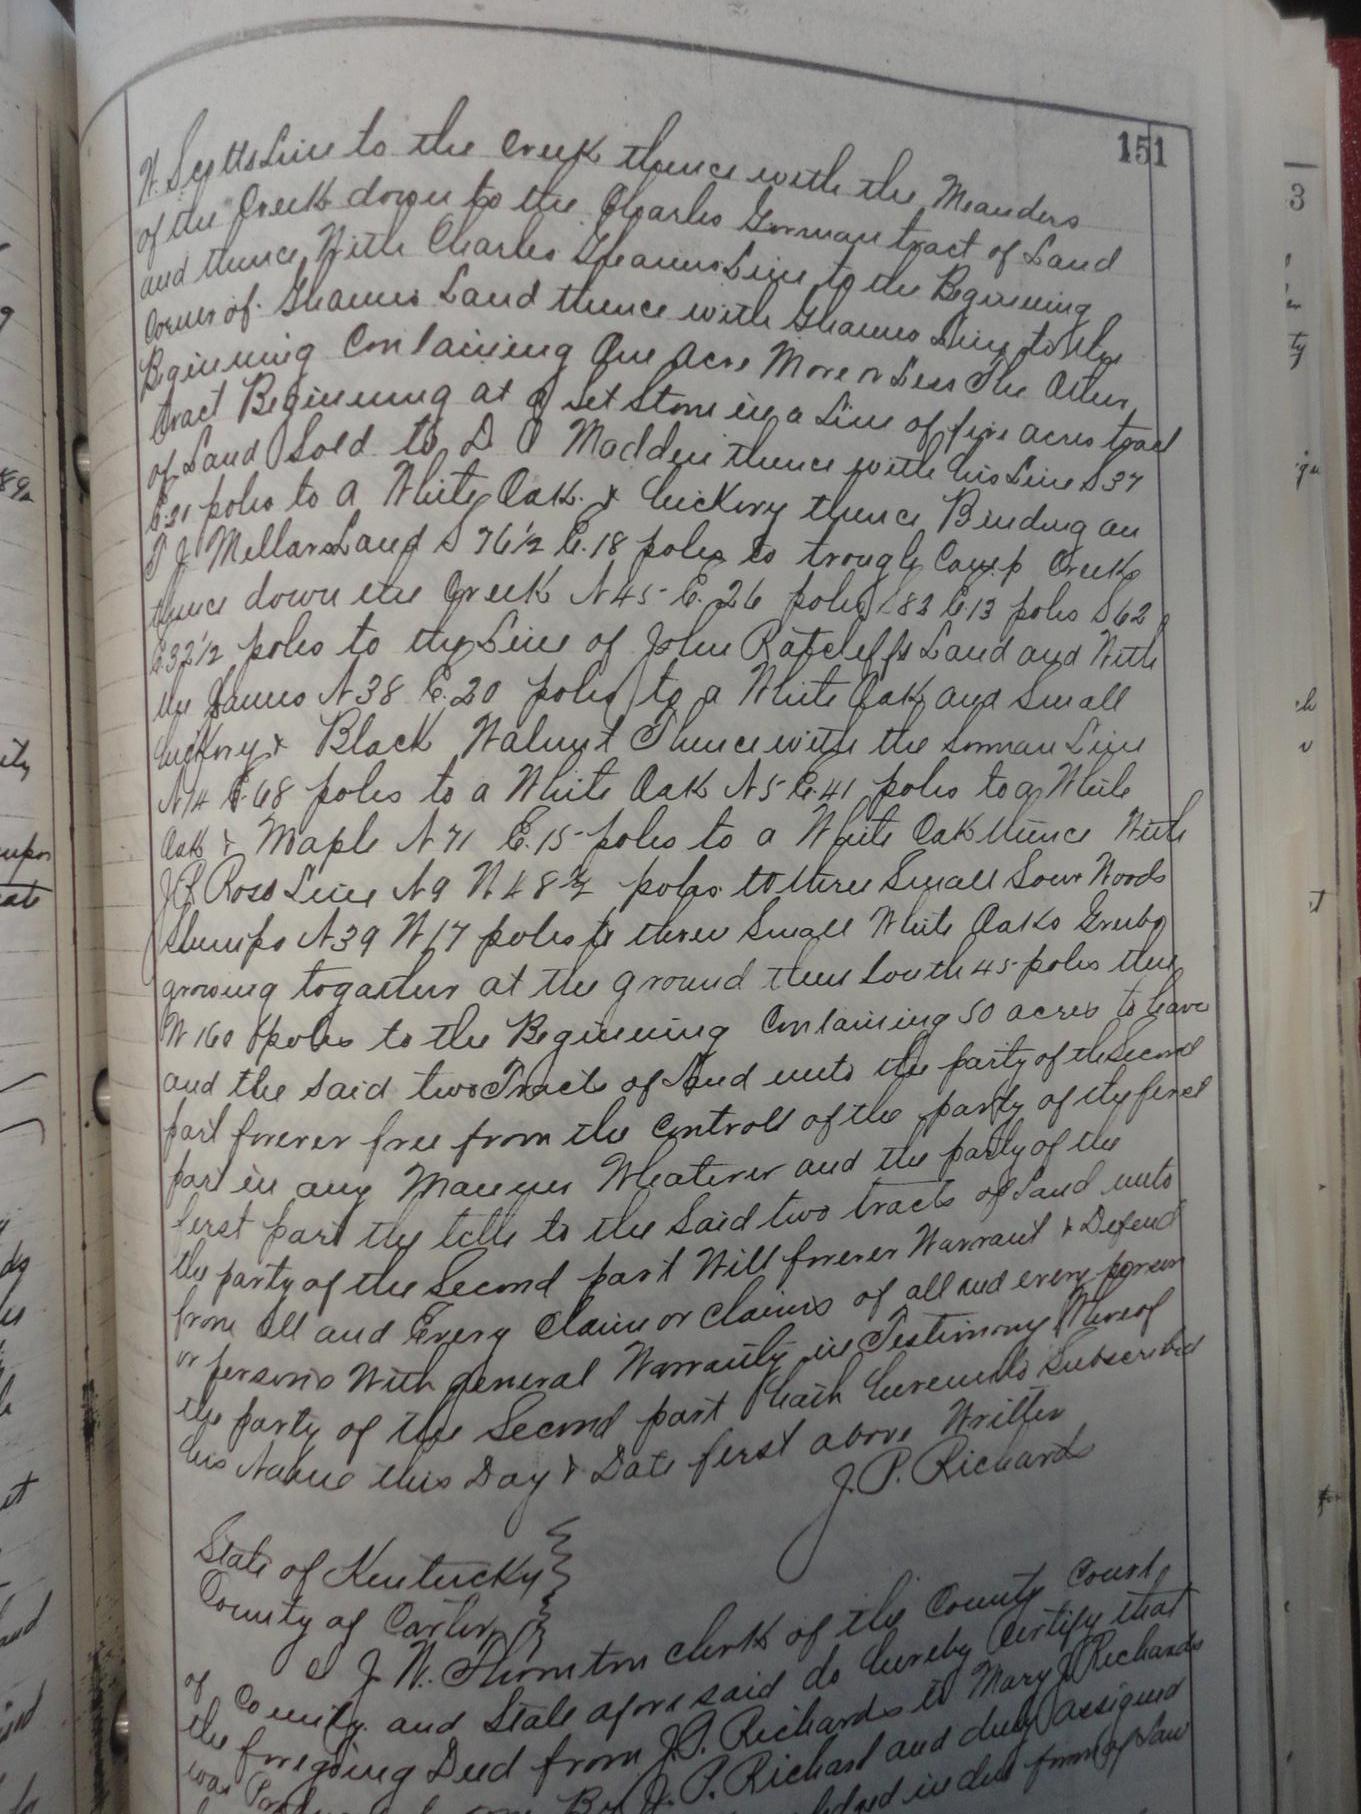 151
W. Scotts Line to the Creek thence with the Meanders
of the Creek down to the Charles Gorman tract of Land
and thence With Charles Line to the Beginning
Corner of Land thence with Line to the
Beginning Containing One Acre More or Less The Other
tract Beginning at a set Stone in a Line of five acres tract
of Land Sold to D Madden thence with his Line S 37
E. 31 poles to a White Oak & hickory thence Binding on
J. Millars Land S 76 1/2 E. 18 poles to trough Camp Creek
thence down the Creek N 45 E. 26 poles S 83 E. 13 poles S 62
E 32 1/2 poles to the Line of John Ratcliffs Land and With
the Same N 38 E. 20 poles to a White Oak and Small
hickory & Black Walnut Thence with the Line
N 14 E. 68 poles to a White Oak N 5 E. 41 poles to a White
Oak & Maple N 71 E. 15 poles to a White Oak thence With
Ross Line N 9 W poles to three Small Sour Woods
Stumps N 39 W 17 poles to three Small White Oaks Grubs
growing togather at the ground then South 45 poles then
W 160 poles to the Begiening Containing 50 acres to have
and the Said two Tracts of Land unto the party of the Second
part forever free from the Controll of the party of the first
part in any Manner Whatever and the party of the
first part the title to the Said two tracts of Land unto
the party of the Second part Will forever Warrant & Defend
from all and Every Claim or Claims of all and every person
or persons With general Warranty in Testimony Whereof
the party of the Second part hath hereunto Subscribed
his Name this Day & Date first above Written
J. P. Richards
State of Kentucky
County of Carter
I J. W. Thornton clerk of the County Court
of County and State afore said do hereby Certify that
the foregoing Deed from J. P. Richards to Mary J. Richards
was By J. P. Richard and duly assigned
in due form of Law